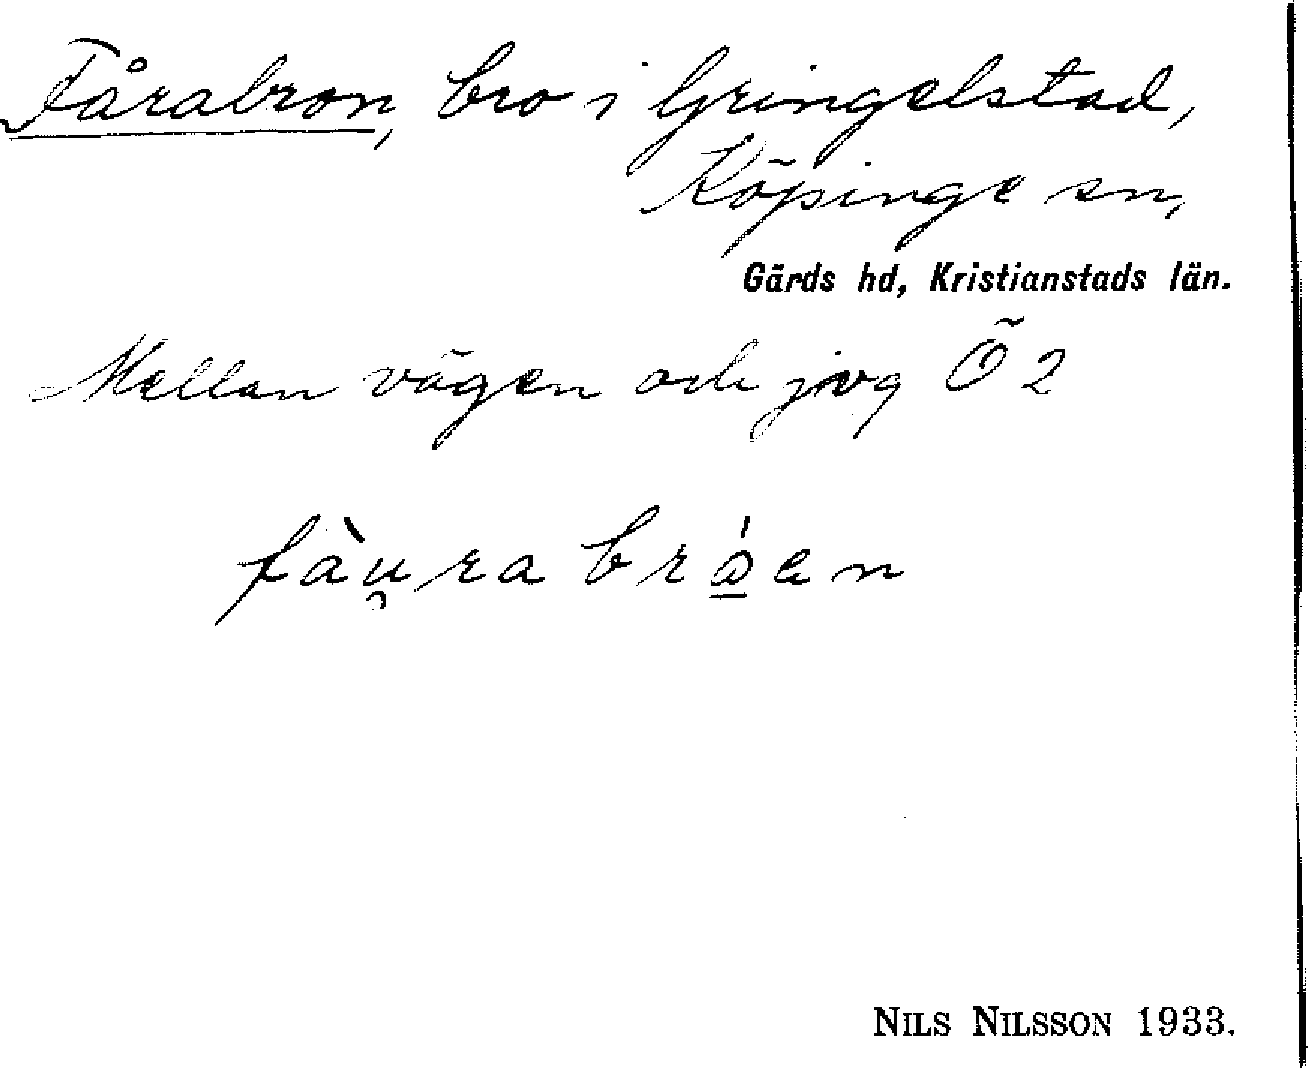 Fårabron, bro i Gringelstad,
Köpinge sn,
Gärds hd, Kristianstads län.
Mellan vägen och jvg Ö 2
fàu̯ra brǿ̱en
NILS NILSSON 1933.